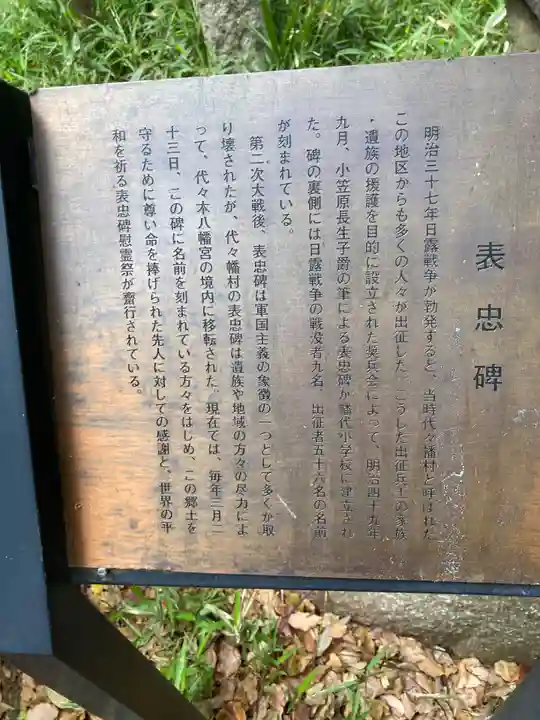 表忠碑
明治三十七年日露戦争が勃発すると、当時代々幡村と呼ばれた
この地区からも多くの人々が出征した。こうした出征兵士の家族
・遺族の援護を目的に設立された奨兵会によって、明治四十九年
九月、小笠原長生子爵の筆による表忠碑が幡代小学校に建立され
た。碑の裏側には日露戦争の戦没者九名、出征者五十六名の名前
が刻まれている。
第二次大戦後、表忠碑は軍国主義の象徴の一つとして多くが取
り壊されたが、代々幡村の表忠碑は遺族や地域の方々の尽力によ
って、代々木八幡宮の境内に移転された。現在では、毎年三月二
十三日、この碑に名前を刻まれている方々をはじめ、この郷土を
守るために尊い命を捧げられた先人に対しての感謝と、世界の平
和を祈る表忠碑慰霊祭が齋行されている。